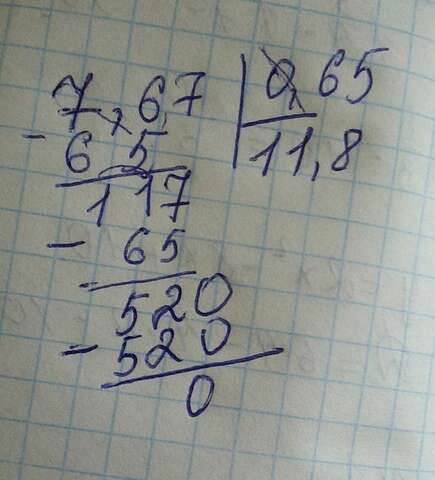 7,67 0,65
- 65 11,8
117
- 65
520
- 520
0